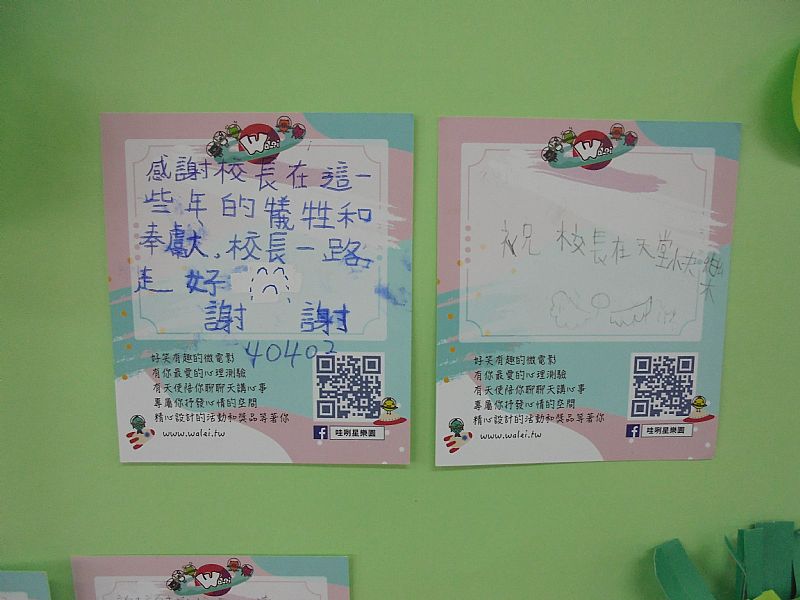 感謝校長在這一
些年的犧牲和
奉獻。校長一路
走 好
謝 謝
40402
好笑有趣的微電影
有你最愛的心理測驗
有天使陪你聊聊天講心事
專屬你抒發心情的空間
精心設計的活動和獎品等著你
www.walei.tw
哇咧星樂園
祝 校長在天堂快樂
好笑有趣的微電影
有你最愛的心理測驗
有天使陪你聊聊天講心事
專屬你抒發心情的空間
精心設計的活動和獎品等著你
www.walei.tw
哇咧星樂園